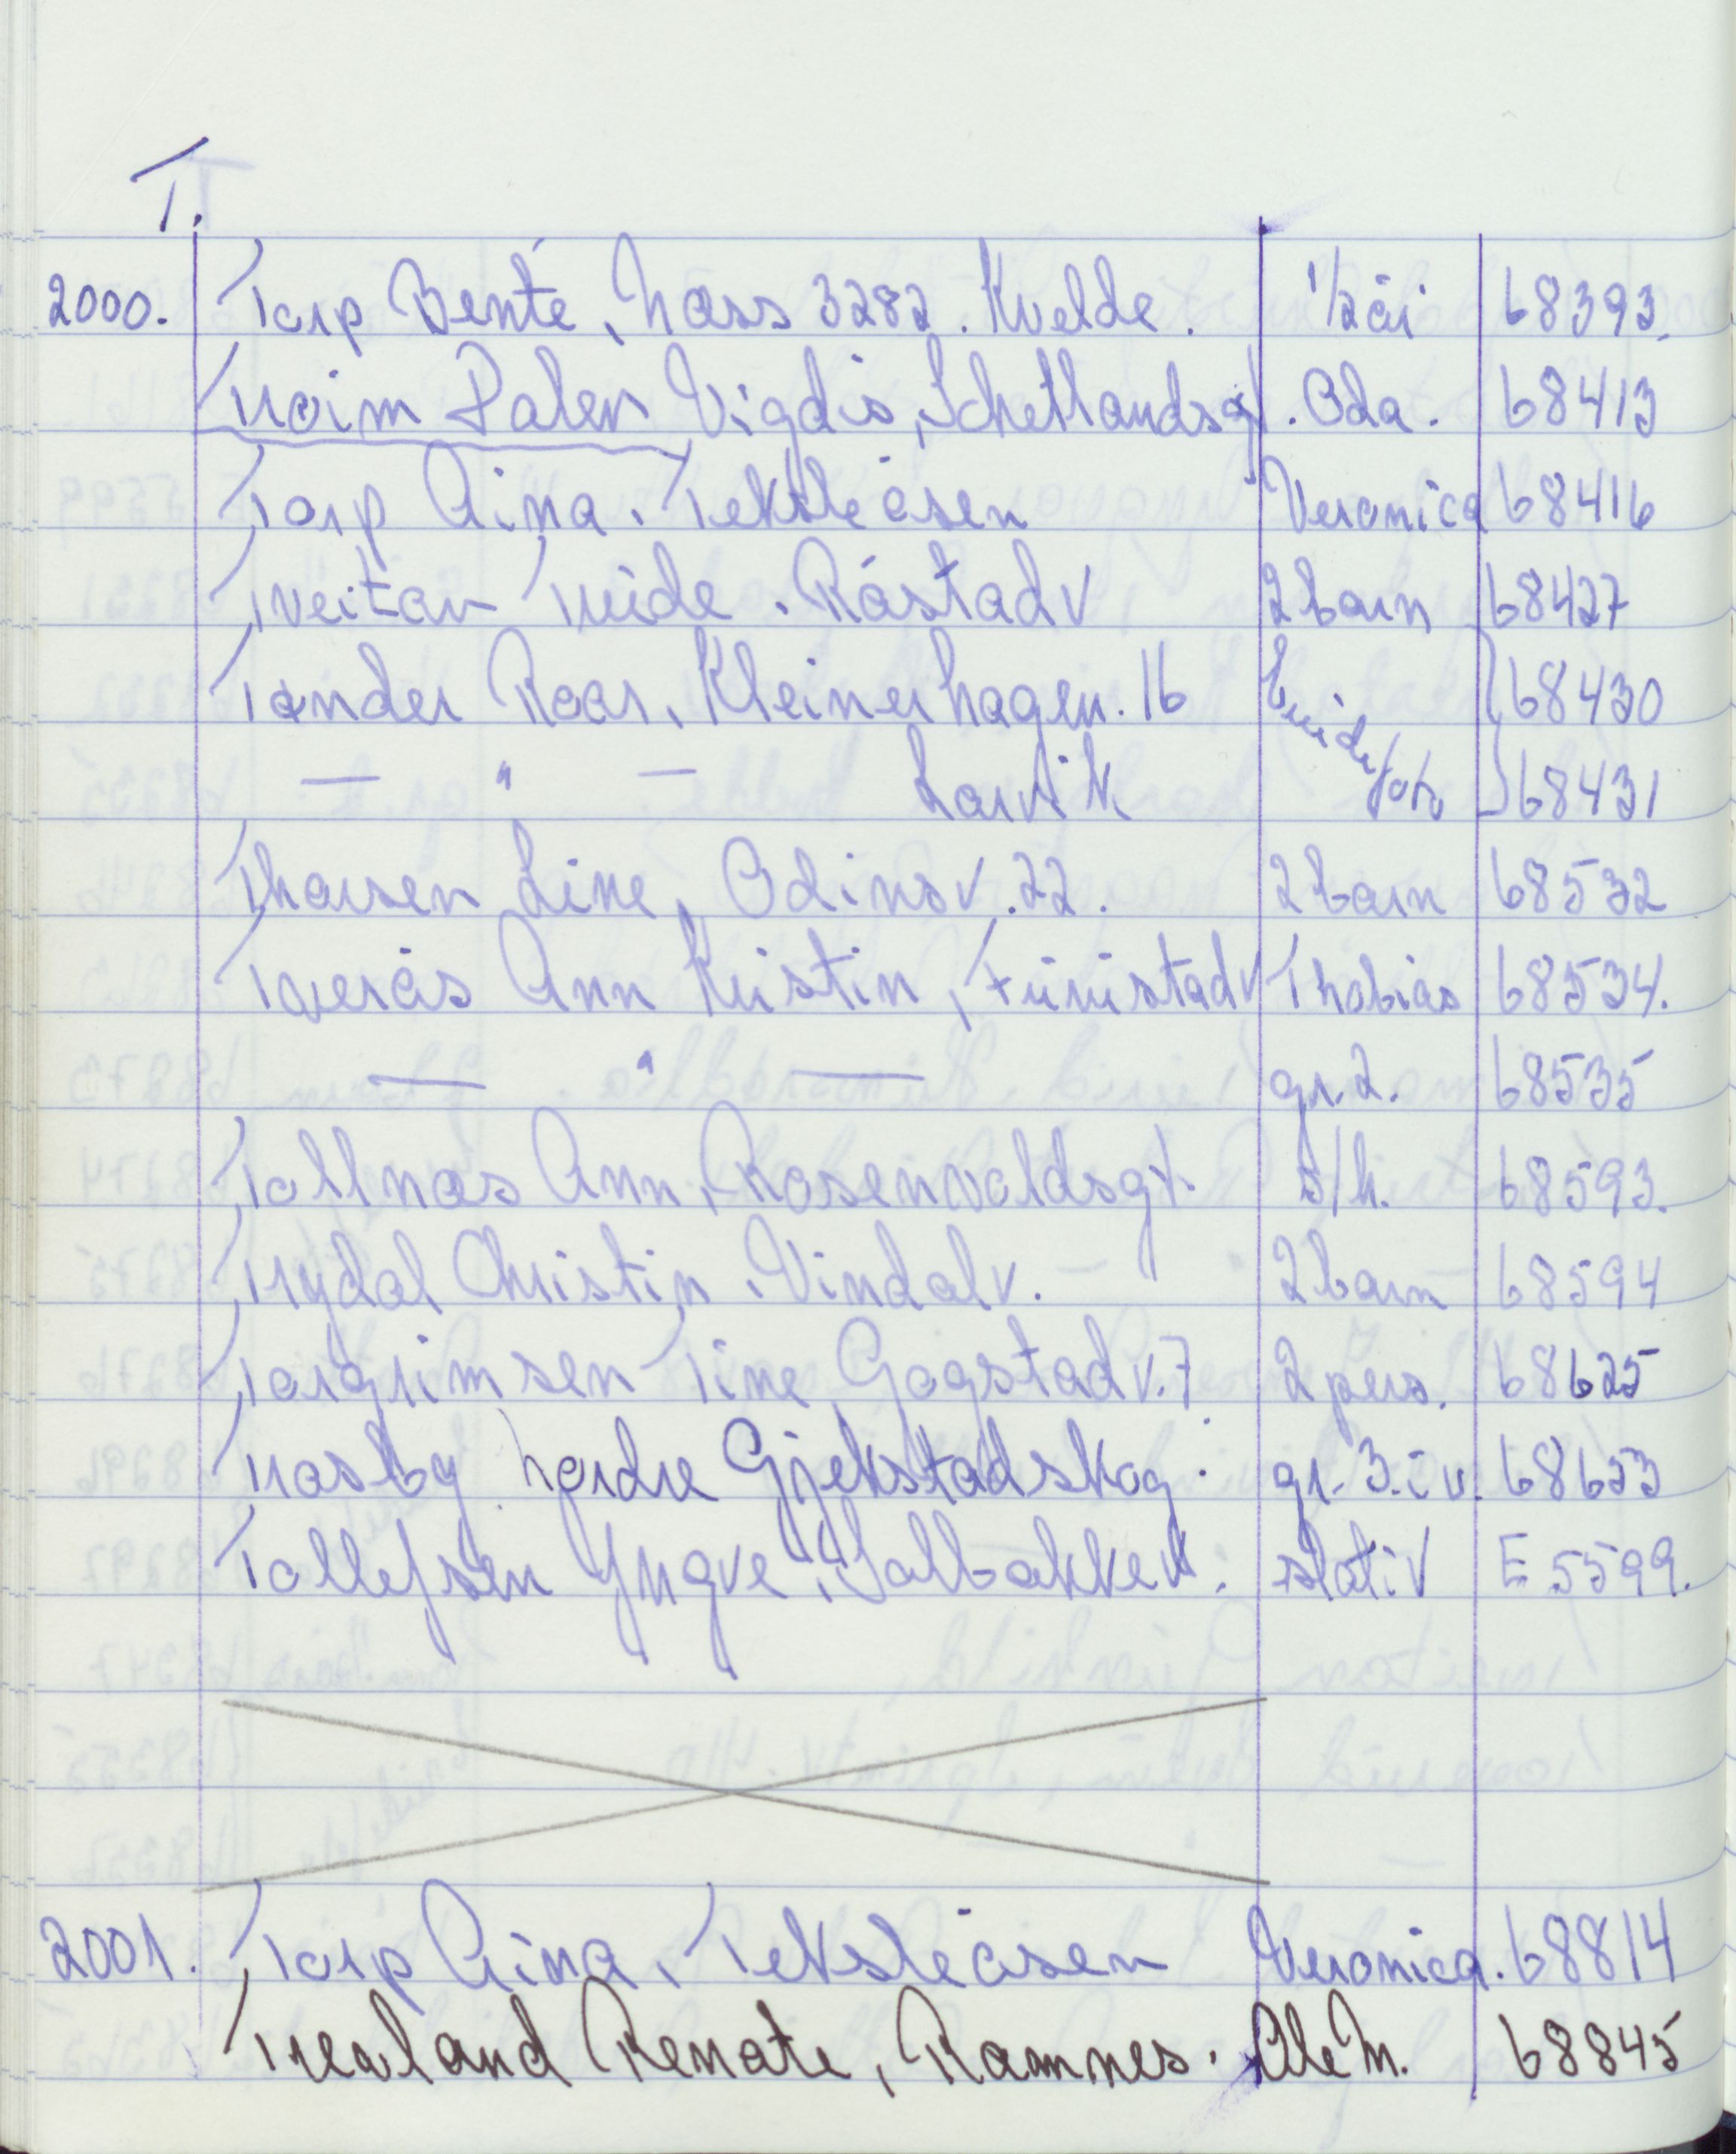 T.
2000. Torp Bente, Næss 3282. Kvelde. 1/2 år 68393.
Troim Dalen Vigdis, Schetlandsgt. Oda. 68413
Torp Aina. Teksleåsen Veronica 68416
Tveitan Tride. Råstadv 2 barn 68427
Tønder Roar, Kleinerhagen. 16 brude 68430
— " — Larvik foto 68431
Thorsen Line, Odinsv. 22. 2 barn 68532
Tverås Ann Kristin, Furustadv Thobias 68534.
— " — gr. 2. 68535
Tollnes Ann, Rosenvoldsgt. s/h. 68593.
Trydal Christin, Vindalv. 2 barn 68594
Torgrimsen Tine Gogstadv. 7 2 pers. 68625
Trosby Nordre Gjekstadskog. gr. 3. i u. 68653
Tollefsen Yngve, Solbakkev. stativ E 5599.
2001. Torp Aina, Teksleåsen Veronica. 68814
Trevland Renate, Ramnes. Ole M. 68845